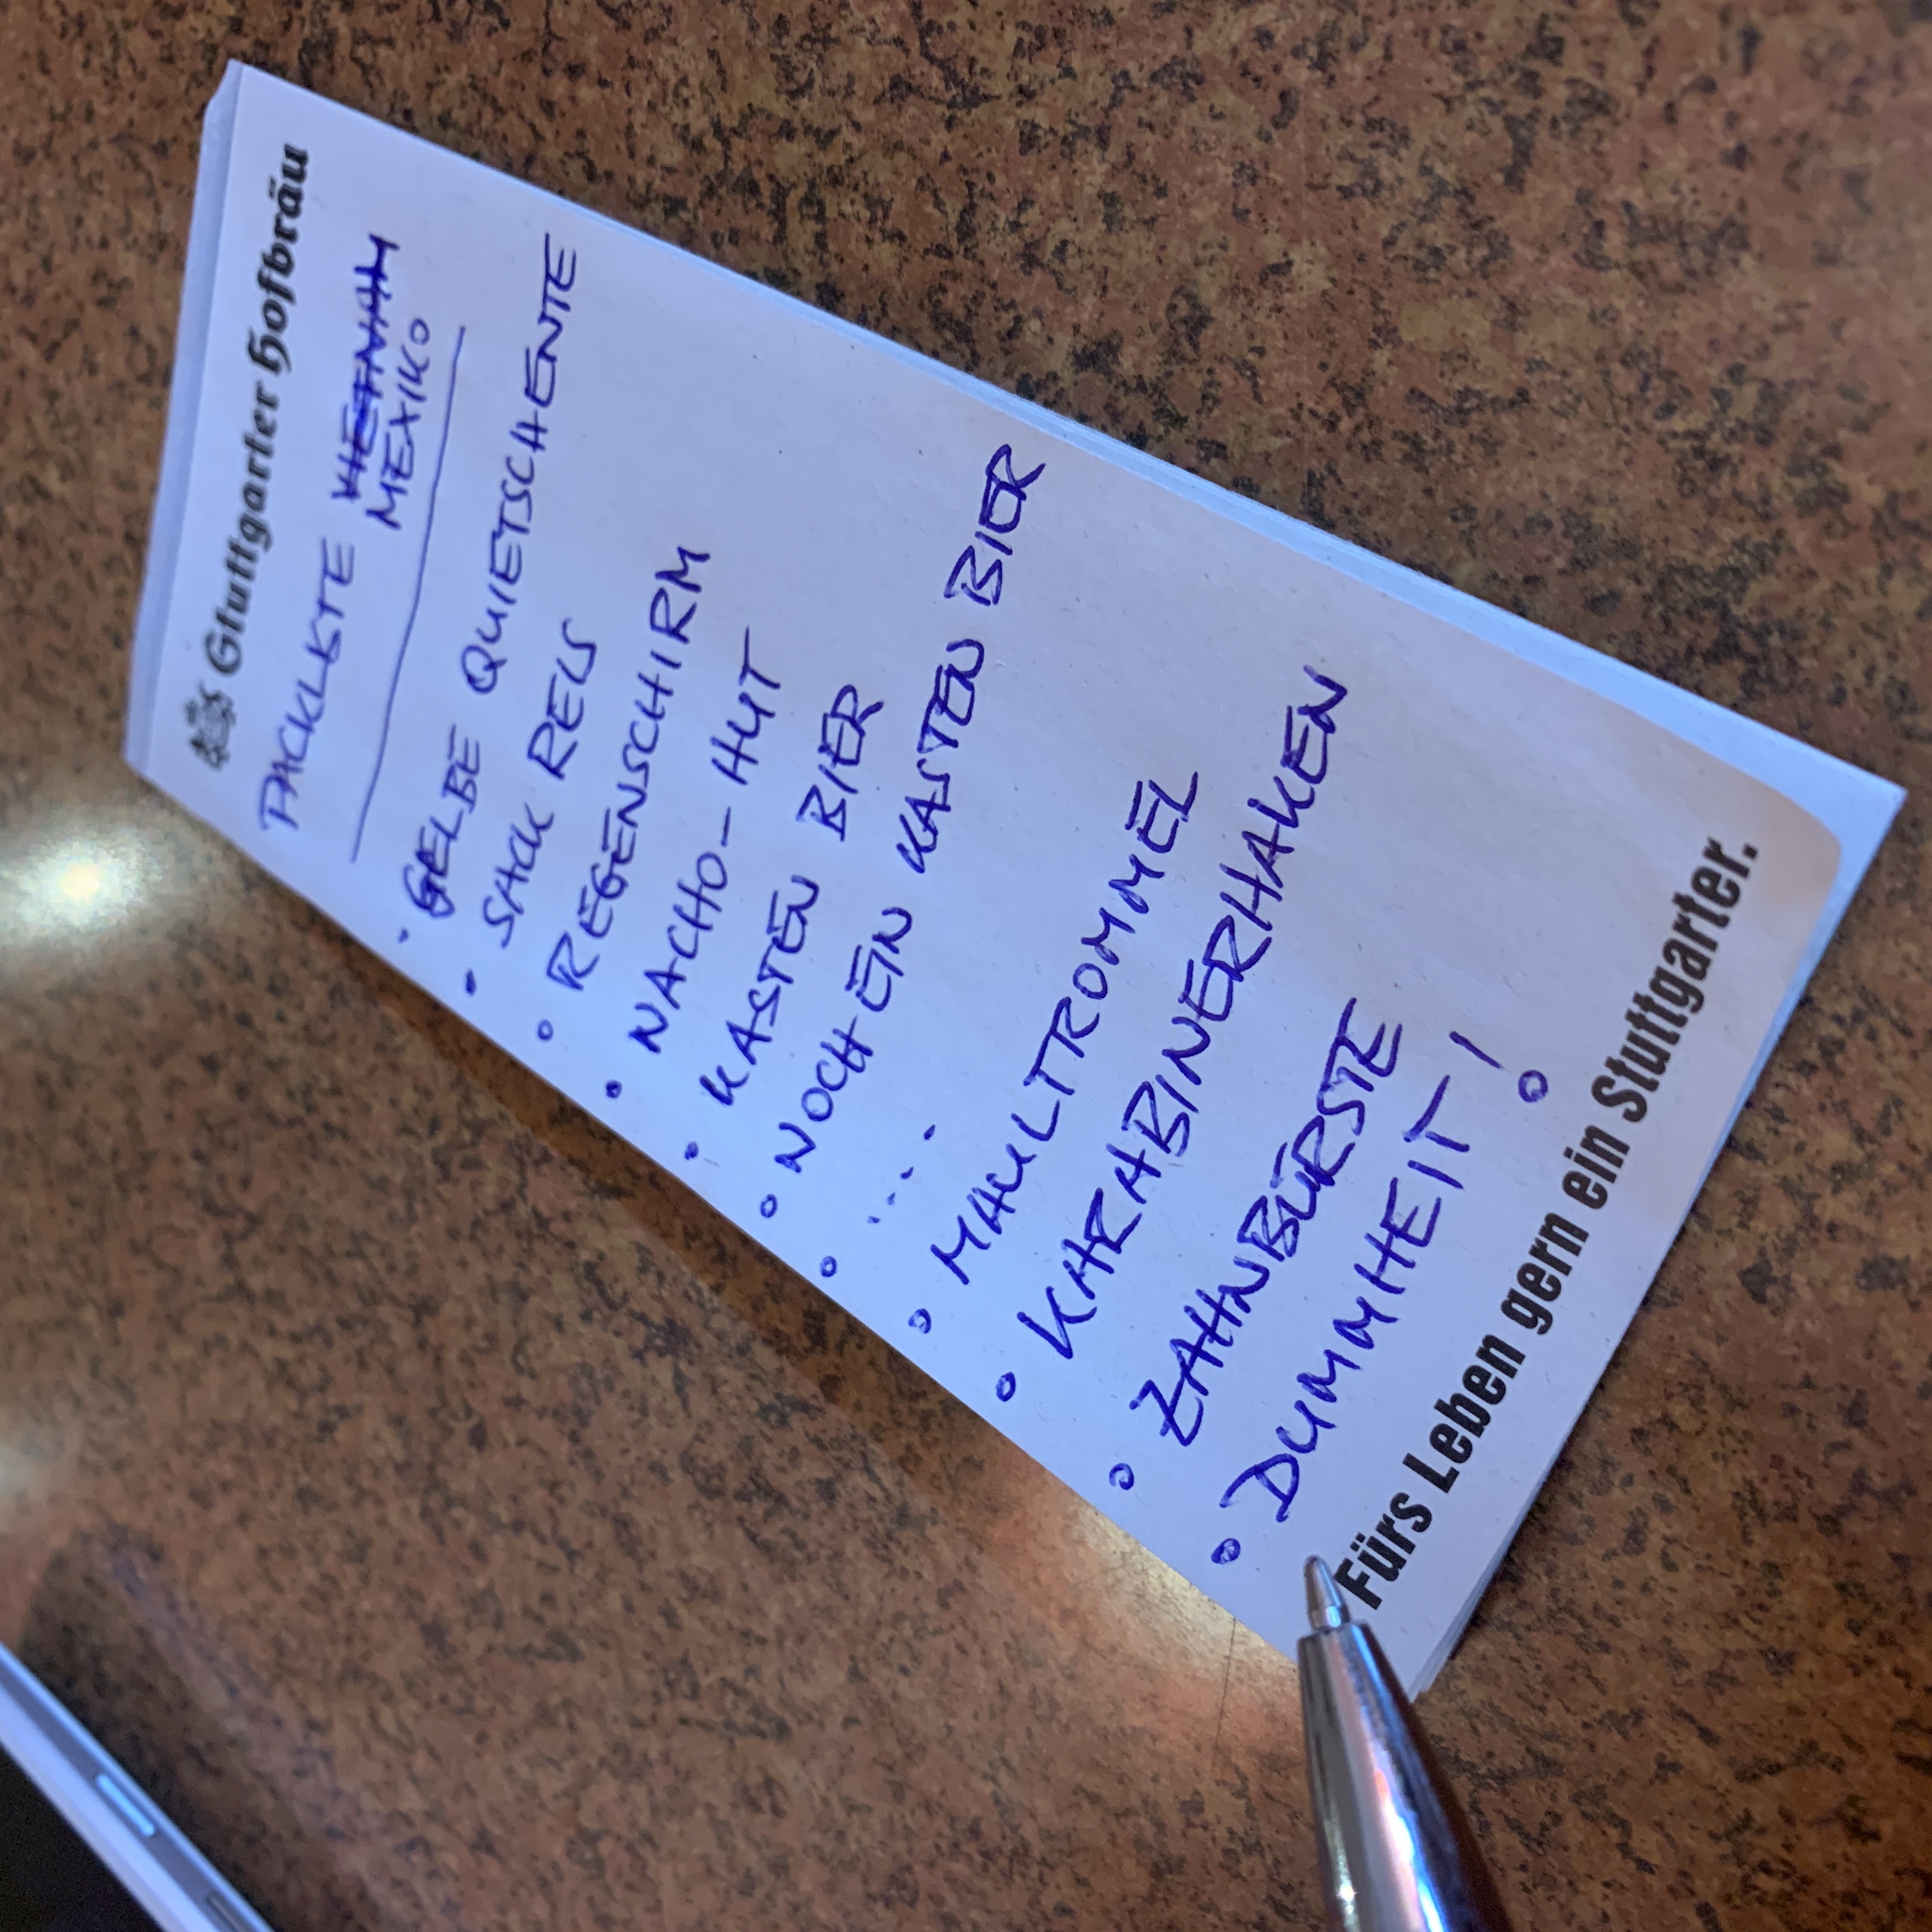 Stuttgarter Hofbräu
PACKLISTE VIETNAM
MEXIKO
• GELBE QUIETSCHENTE
• SACK REIS
• REGENSCHIRM
• NACHO-HUT
• KASTEN BIER
• NOCH EIN KASTEN BIER
• ....
• MAULTROMMEL
• KARABINERHAKEN
• ZAHNBÜRSTE
• DUMMHEIT!
Fürs Leben gern ein Stuttgarter.